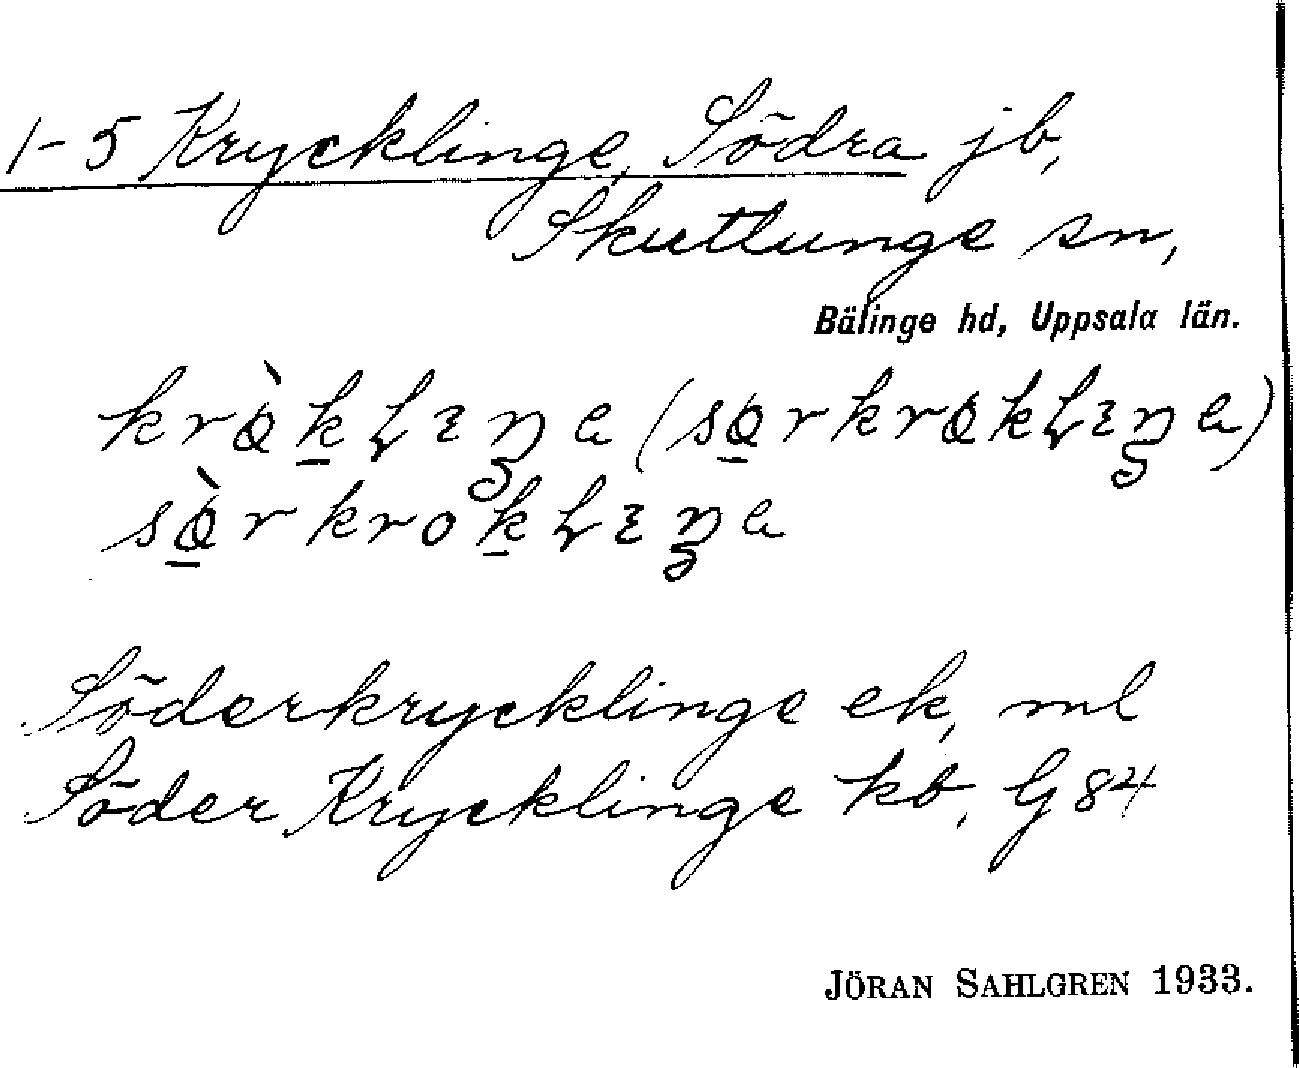 1-5 Krycklinge, Södra jb,
Skuttunge sn,
Bälinge hd, Uppsala län.
Söderkrycklinge ek, ml
Söder Krycklinge kb, G84
JÖRAN SAHLGREN 1933.